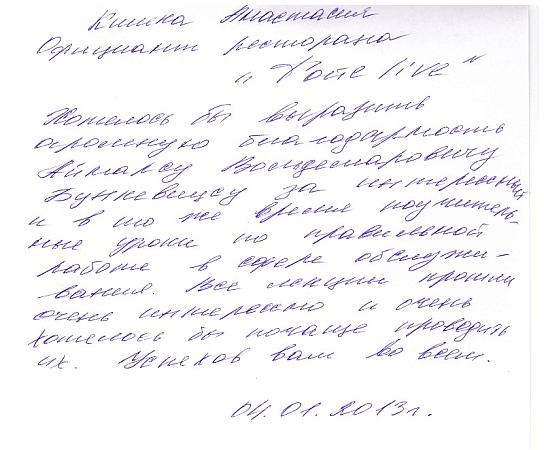 Кишка Анастасия
Официант ресторана
" live "
Хотелось бы выразить
огромную благодарность
Аймансу Вольдемаровичу
Бункевицсу за интересный
и в то же время поучитель-
ные уроки по правильной
работе в сфере обслужи-
вания. Все лекции прошли
очень интересно и очень
хотелось бы почаще проводить
их. Успехов вам во всем.
04.01.2013г.